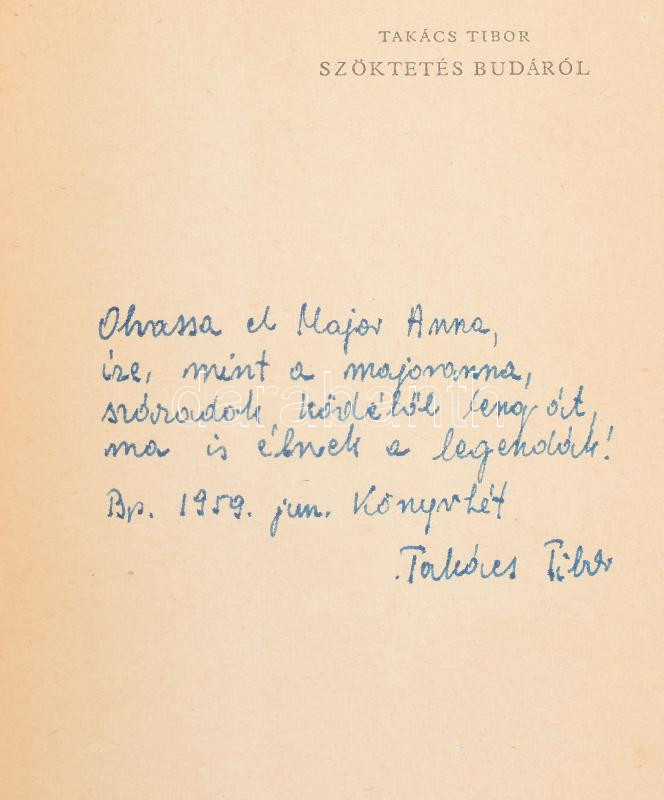 TAKÁCS TIBOR
SZÖKTETÉS BUDÁRÓL
Olvassa el Major Anna,
íze, mint a majoranna,
századok ködéből leng át,
ma is élnek a legendák!
Bp. 1959. jun. Könyvhét
Takács Tibor
darabanth